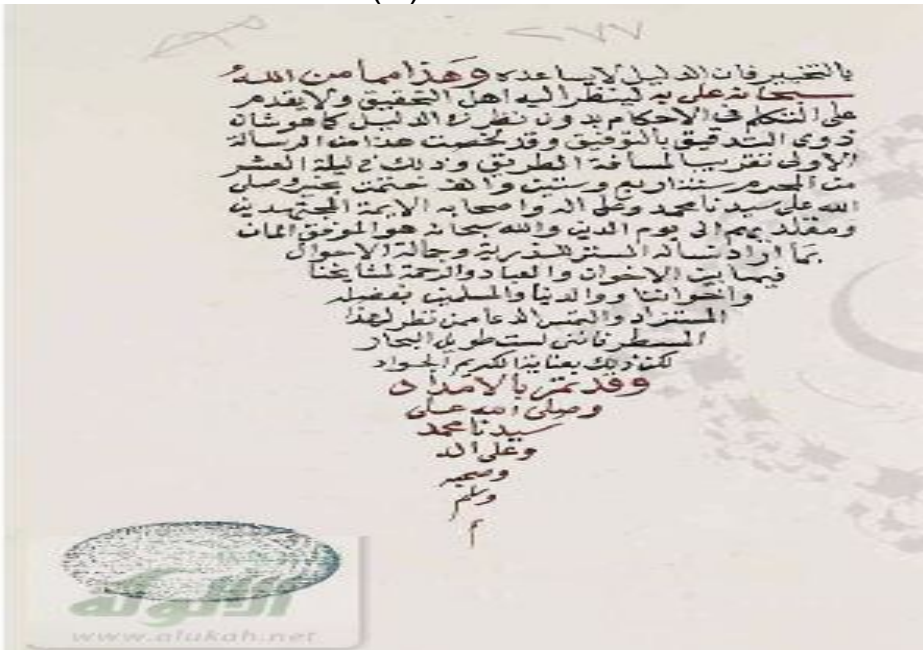 ٢٧٧
بالتخيير فان الدليل لا يساعده وهذا مما من الله
سبحانه على به لينظر اليه اهل التحقيق ولا يقدم
على التكلم في الاحكام بدون نظره الدليل كما هو شأن
ذوى التدقيق بالتوفيق وقد لخصت هذا من الرسالة
الاولى تقريبا لمسافة الطريق وذلك في ليلة العشر
من المحرم سنة اربع وستين والف ختمت بخير وصلى
الله على سيدنا محمد وعلى اله واصحابه الايمة المجتهدين
ومقلديهم الى يوم الدين والله سبحانه هو الموفق المان
بما اراد نساله الستر للذرية وجمالة الاحوال
فيما بين الاخوان والعباد والرحمة لمشايخنا
واخواننا ووالدينا والمسلمين بفضله
المستزاد والتمس الدعا ممن نظر لهذا
المسطر فانني لست طويل
لكن ذلك بعناية الكريم الجواد
وقد تم بالامداد
وصلى الله على
سيدنا محمد
وعلى اله
وصحبه
وسلم
م
الألوكة
www.alukah.net